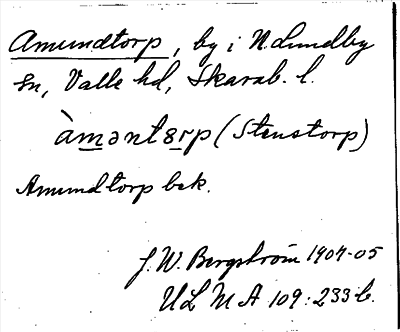 Amundtorp, by i N. Lundby
sn, Valle hd, Skarab. l.
àməntɞrp (Stenstorp)
Amundtorp bek.
J. W. Bergström 1904-05
ULMA 109:233 b.